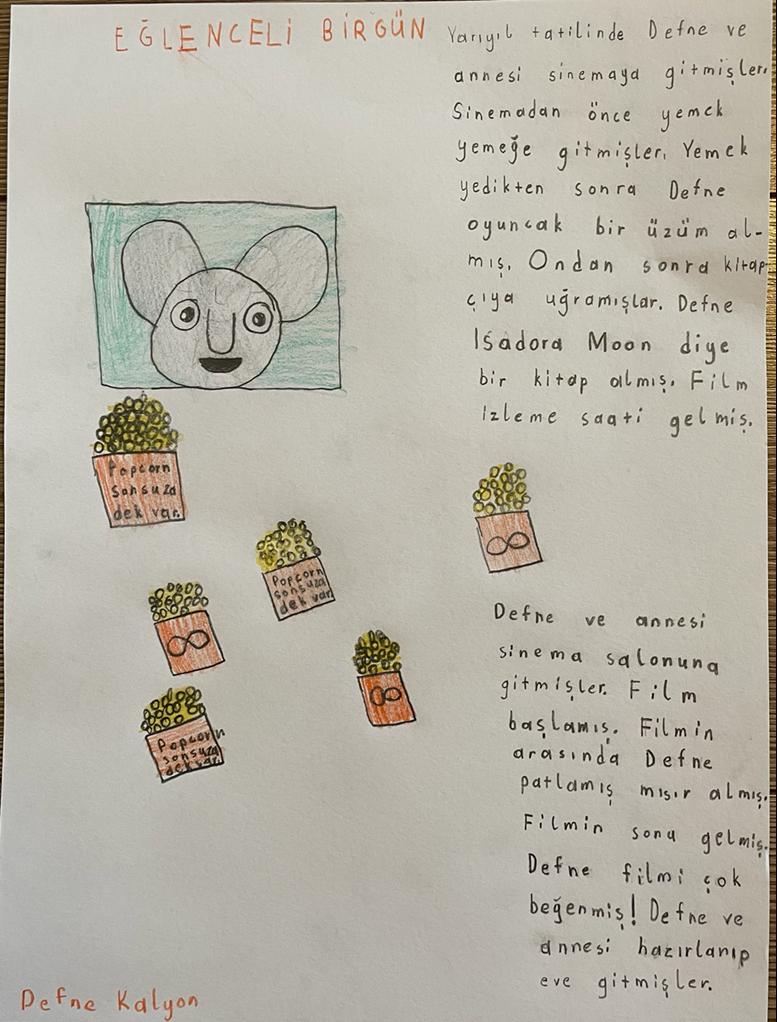 EĞLENCELİ BİRGÜN
Yarıyıl tatilinde Defne ve
annesi sinemaya gitmişler.
Sinemadan önce yemek
yemeğe gitmişler. Yemek
yedikten sonra Defne
oyuncak bir üzüm al-
mış. Ondan sonra kitap-
çıya uğramışlar. Defne
Isadora Moon diye
bir kitap almış. Film
izleme saati gelmiş.
Popcorn
sonsuza
dek var.
Popcorn
sonsuza
dek var.
∞
∞
∞
Popcorn
sonsuza
dek var.
Defne ve annesi
sinema salonuna
gitmişler. Film
başlamış. Filmin
arasında Defne
patlamış mısır almış.
Filmin sonu gelmiş.
Defne filmi çok
beğenmiş! Defne ve
annesi hazırlanıp
eve gitmişler.
Defne Kalyon